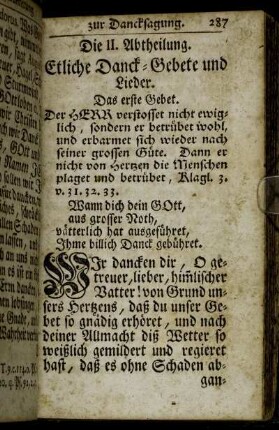 zur Dancksagung. 287
Die II. Abtheilung.
Etliche Danck-Gebete und
Lieder.
Das erste Gebet.
Der HERR verstosset nicht ewig-
lich, sondern er betrübet wohl,
und erbarmet sich wieder nach
seiner grossen Güte. Dann er
nicht von Hertzen die Menschen
plaget und betrübet, Klagl. 3.
v. 31. 32. 33.
Wann dich dein GOtt,
aus grosser Noth,
vätterlich hat ausgeführet,
Ihme billich Danck gebühret.
WIr dancken dir, O ge-
treuer, lieber, him̃lischer
Vatter! von Grund un-
sers Hertzens, daß du unser Ge-
bet so gnädig erhöret, und nach
deiner Allmacht diß Wetter so
weißlich gemildert und regieret
hast, daß es ohne Schaden ab-
gan-